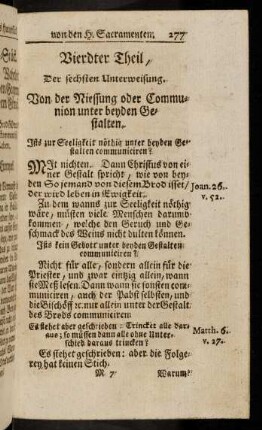 von den H. Sacramenten. 277
Vierdter Theil,
Der sechsten Unterweisung.
Von der Niessung oder Commu-
nion unter beyden Ge-
stalten.
Ists zur Seeligkeit nöthig unter beyden Ge-
stalten communiciren?
MIt nichten. Dann Christus von ei-
ner Gestalt spricht, wie von bey-
den So jemand von diesem Brod isset/ Joan. 26.
der wird leben in Ewigkeit. v. 52.
Zu dem wanns zur Seeligkeit nöthig
wäre, müsten viele Menschen darumb
kommen, welche den Geruch und Ge-
schmack des Weins nicht dulten können.
Ists kein Gebott unter beyden Gestalten
communiciren?
Nicht für alle, sondern allein für die
Priester, und zwar eintzig allein, wann
sie Meß lesen. Dann wann sie sonsten com-
municiren, auch der Pabst selbsten, und
die Bischöff ꝛc. nur allein unter der Gestalt
des Brods communiciren
Es stehet aber geschrieben: Trincket alle dar- Matth. 6.
aus; so müssen dann alle ohne Unter- v. 27.
schied daraus trincken?
Es stehet geschrieben: aber die Folge-
rey hat keinen Stich.
M 7 Warum?